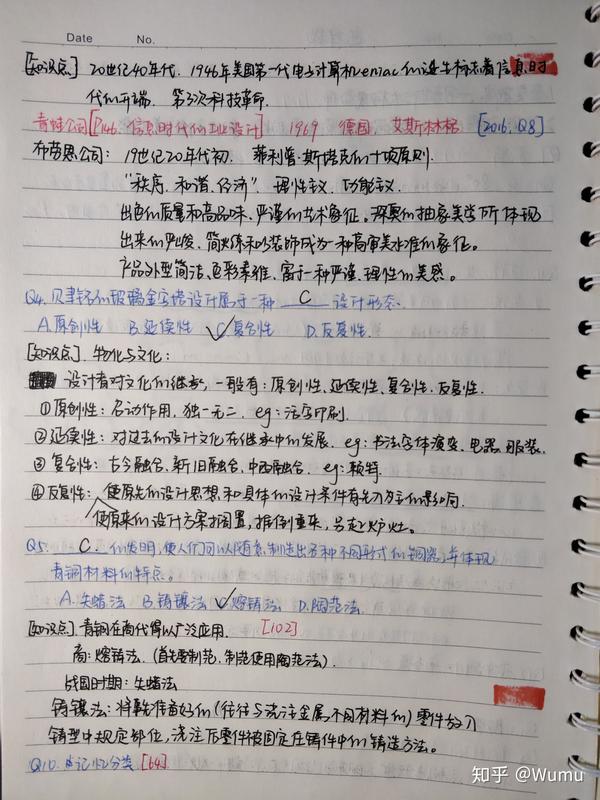 Date No.
[知识点] 20世纪40年代. 1946年美国第一代电子计算机eniac的诞生标志着信息时
代的开端. 第3次科技革命.
青蛙公司[P146. 信息时代的工业设计] 1969 德国. 艾斯林格 [2016. Q8]
布劳恩公司: 19世纪20年代初. 蒂利普·斯塔克的十项原则.
"秩序. 和谐. 经济". 理性主义. 功能主义.
出色的质量和高品味. 严谨的艺术象征。深奥的抽象美学所体现
出来的严峻. 简少装饰成为一种高审美水准的象征。
产品外型简洁、色彩素雅. 富于一种严谨. 理性的美感。
Q4. 贝聿铭的玻璃金字塔设计属于一种 C 设计形态.
A. 原创性 B. 延续性 C. 复合性 D. 反复性.
[知识点]. 物化与文化:
设计者对文化的继承, 一般有: 原创性、延续性、复合性、反复性.
①原创性: 启动作用. 独一无二. eg: 活字印刷.
②延续性: 对过去的设计文化在继承中的发展. eg: 书法字体演变. 电器. 服装.
③复合性: 古今融合. 新旧融合. 中西融合. eg: 赖特.
④反复性: 使原先的设计思想和具体的设计条件有先入为主的影响.
使原来的设计方案搁置, 推倒重来, 另起炉灶。
Q5. C. 的发明, 使人们可以随意制造出各种不同形式的铜器, 并体现
青铜材料的特点。
A. 失蜡法 B. 铸镶法 C. 熔铸法 D. 陶范法.
[知识点]. 青铜在商代得以广泛应用. [102]
商: 熔铸法. (首先要制范, 制范使用陶范法).
战国时期: 失蜡法
铸镶法: 将事先准备好的(往往与浇注金属不同材料的)零件放入
铸型中规定部位, 浇注后零件被固定在铸件中的铸造方法。
Q10. 记忆分类. [64]
知乎 @Wumu